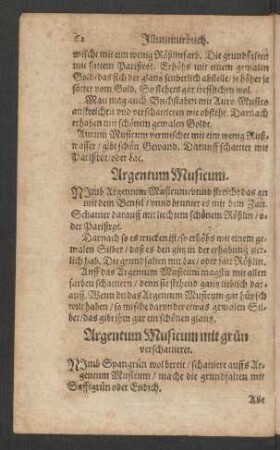 62 Illuminirbuch.
wischt mit ein wenig Rößlinfarb. Die grundfalten
mit sattem Parißrot. Erhöhs mit einem gemalen
Gold / das sich der glantz seuberlich abstelle / je höher je
satter vom Gold. So stehets gar treffelichen wol.
Man mag auch Buchstaben mit Auro Musico
außstreichen und verschattieren wie obsteht. Darnach
erhaben mit schönem gemalen Goldt.
Aurum Musicum vermischt mit ein wenig Ruß-
wasser / gibt schön Gewand. Darauff schattier mit
Parißrot / oder Lac.
Argentum Musicum.
NImb Argentum Musicum / unnd streichs das an
mit dem Bensel / unnd breunier es mit dem Zan.
Schattier darauff mit liechtem schönem Rößlin / o-
der Parißrot.
Darnach so es trucken ist / so erhöhs mit einem ge-
malen Silber / daß es den glantz in der erhabnuß zier-
lich hab. Die grundfalten mit Lac / oder satt Rößlin.
Auff das Argentum Musicum magstu mit allen
farben schattiern / denn sie stehend gantz lieblich dar-
auff. Wenn du das Argentum Musicum gar hübsch
wilt haben / so mische darunder etwas gemalen Sil-
ber / das gibt ihm gar ein schönen glantz.
Argentum Musicum mit grün
verschattieret.
NImb Spangrün wol bereit / schattiere auffs Ar-
gentum Musicum / mache die grundfalten mit
Safftgrün oder Endich.
Alle